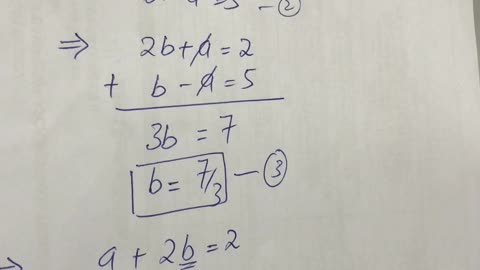 - ②
⇒ 2b + a = 2
+ b - a = 5
3b = 7
b = 7/3 - ③
⇒ a + 2b = 2